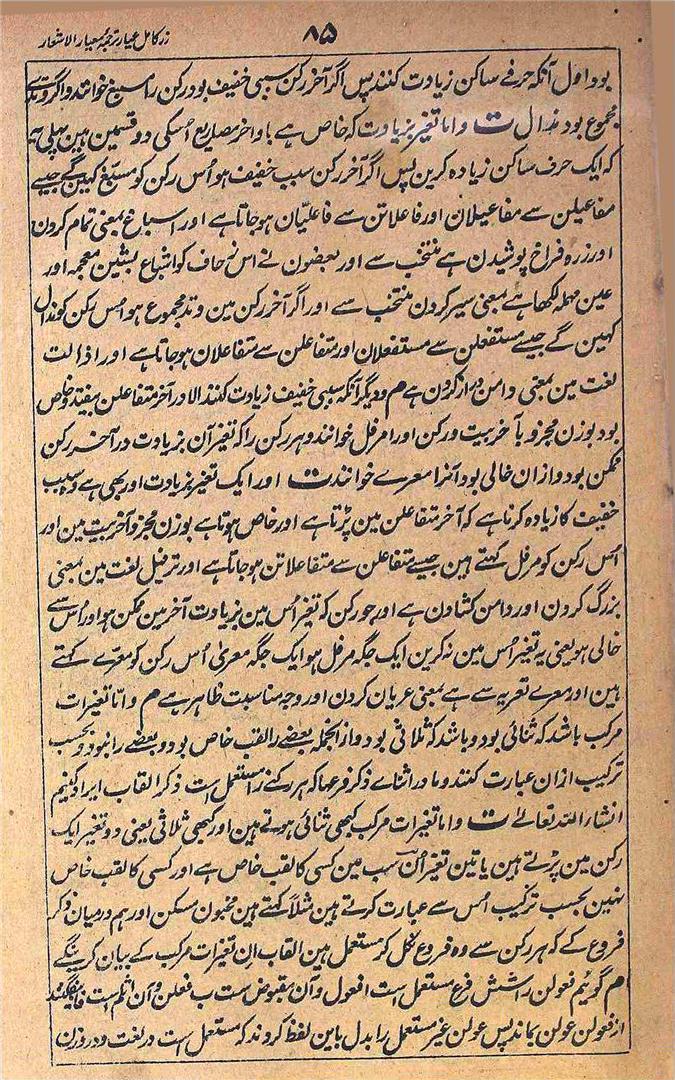 ۸۵
زر کامل عیار ترجمهٔ معیار الاشعار
بود اول آنکہ حرفے ساکن زیادت کنند پس اگر آخر رکن سببی خفیف بود رکن را مسبغ خوانند و اگر وتدے
مجموع بود مذال ت و اما تغیر بزیادت کہ خاص ہے باواخر مصاریع اُسکی دو قسمین ہین پہلی یہ
کہ ایک حرف ساکن زیادہ کرین پس اگر آخر رکن سبب خفیف ہو اُس رکن کو مسبغ کہین گے جیسے
مفاعیلن سے مفاعیلان اور فاعلاتن سے فاعلیان ہو جاتا ہے اور اسباغ بمعنی تمام کردن
اور زرہ فراخ پوشیدن ہے منتخب سے اور بعضون نے اس زحاف کو اشباع بشین معجمہ اور
عین مہملہ لکھا ہے بمعنی سیر کردن منتخب سے اور اگر آخر رکن مین وتد مجموع ہو اُس رکن کو مذال
کہین گے جیسے مستفعلن سے مستفعلان اور متفاعلن سے متفاعلان ہو جاتا ہے اور اذالت
لغت مین بمعنی دامن دراز کردن ہے م و دیگر آنکہ سببی خفیف زیادت کنند الا در آخر متفاعلن نیفتد و خاص
بود بوزن مجزو بآخر بیت و رکن اور امرفل خوانند و ہر رکن را کہ تغیر آن بزیادت در آخر رکن
ممکن بود و ازان خالی بود آنرا معرے خوانند ت اور ایک تغیر بزیادت اور بھی ہے وہ سبب
خفیف کا زیادہ کرنا ہے کہ آخر متفاعلن مین پڑتا ہے اور خاص ہوتا ہے بوزن مجزو آخر بیت مین اور
اُس رکن کو مرفل کہتے ہین جیسے متفاعلن سے متفاعلاتن ہو جاتا ہے اور ترفیل لغت مین بمعنی
بزرگ کردن اور دامن کشادن ہے اور جو رکن کہ تغیر اُس مین بزیادت آخر مین ممکن ہو اور اُس سے
خالی ہو یعنی یہ تغیر اُس مین نہ کرین ایک جگہ مرفل ہو ایک جگہ معریٰ اُس رکن کو معرے کہتے
ہین اور معرے تعریہ سے ہے بمعنی عریان کردن اور وجہ مناسبت ظاہر ہے م و اما تغیرات
مرکب باشد کہ ثنائی بود و باشد کہ ثلاثی بود و از انجملہ بعضے را لقب خاص بود و بعضے را نبود و بحسب
ترکیب ازان عبارت کنند و ما در اثنائے ذکر فرعہا کہ ہر رکنے را مستعمل است ذکر القاب ایراد کنیم
انشاء اللہ تعالے ت و اما تغیرات مرکب کبھی ثنائی ہوتے ہین اور کبھی ثلاثی یعنی دو تغیر ایک
رکن مین پڑتے ہین یا تین تغیر اُن سب مین کسی کا لقب خاص ہے اور کسی کا لقب خاص
نہین بحسب ترکیب اُس سے عبارت کرتے ہین مثلاً کہتے ہین مخبون مسکن اور ہم درمیان ذکر
فروع کے کہ ہر رکن سے وہ فروع نکل کر مستعمل ہین القاب اِن تغیرات مرکب کے بیان کرینگے
م گوئیم فعولن را شش فرع مستعمل است ا فعول و آن مقبوض ست ب فعلن و آن اثلم است فا بیفگنند
از فعولن عولن بماند پس عولن غیر مستعمل را بدل باین لفظ کردند کہ مستعمل است در لغت و در وزن